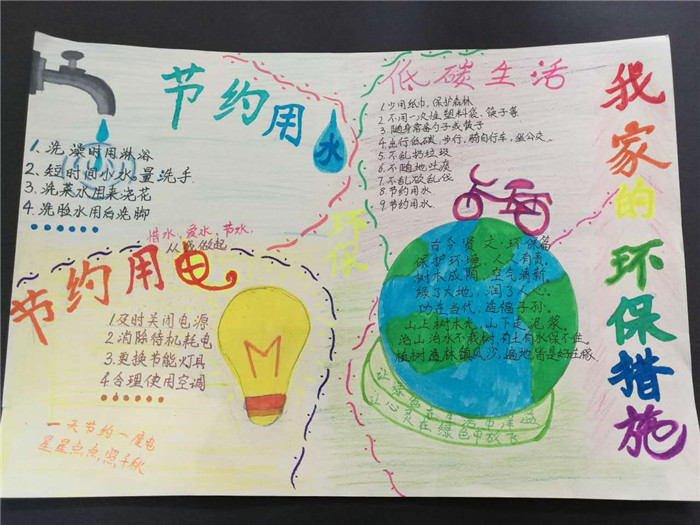 节约用水
1.洗澡时用淋浴
2.短时间小水量洗手
3.洗菜水用来浇花
4.洗脸水用白洗脚
惜水、爱水、节水，
从我做起
节约用电
1及时关闭电源
2消除待机耗电
3.更换节能灯具
4.合理使用空调
一天节约一度电
星星点点,照千秋
环保
低碳生活
1.少用纸巾,保护森林
2.不用一次性塑料袋、筷子等
3.随身常备勺子或筷子
4.出行低碳 步行、骑自行车、坐公交
5.不乱扔垃圾
6.不随地吐痰
7.不乱砍乱伐
8.节约用水
9.节约用水
古今贤文·环保篇
保护环境，人人有责。
树木成阴，空气清新
绿了大地，润了人心。
功在当代，造福子孙。
山上树木光，山下走泥浆。
治山治水不栽树，有土有水保不住。
植树造林镇风沙，遍地皆是好庄稼
让绿色在生活中洋溢
让心灵在绿色中放飞
我家的环保措施